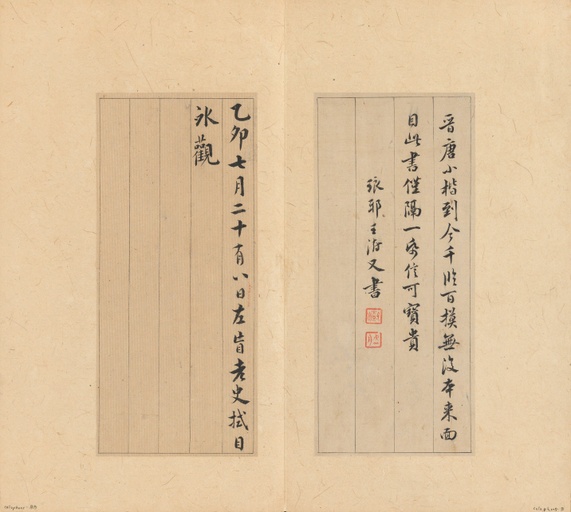 晉唐小楷到今千臨百摸無復本來面
目此書僅隔一帋信可寶貴
琅邪王澍又書
乙卯七月二十有八日左盲老史拭目
氷觀